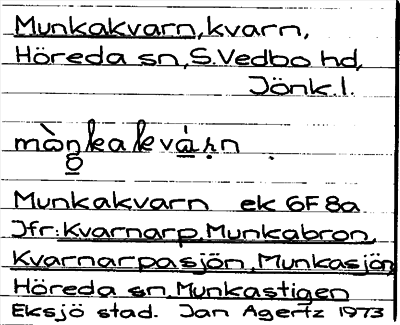 Munkakvarn, kvarn,
Höreda sn, S.Vedbo hd,
Jönk.l.
Munkakvarn ek 6F8a
Jfr: Kvarnarp, Munkabron,
Kvarnarpasjön, Munkasjön
Höreda sn, Munkastigen
Eksjö stad. Jan Agertz 1973